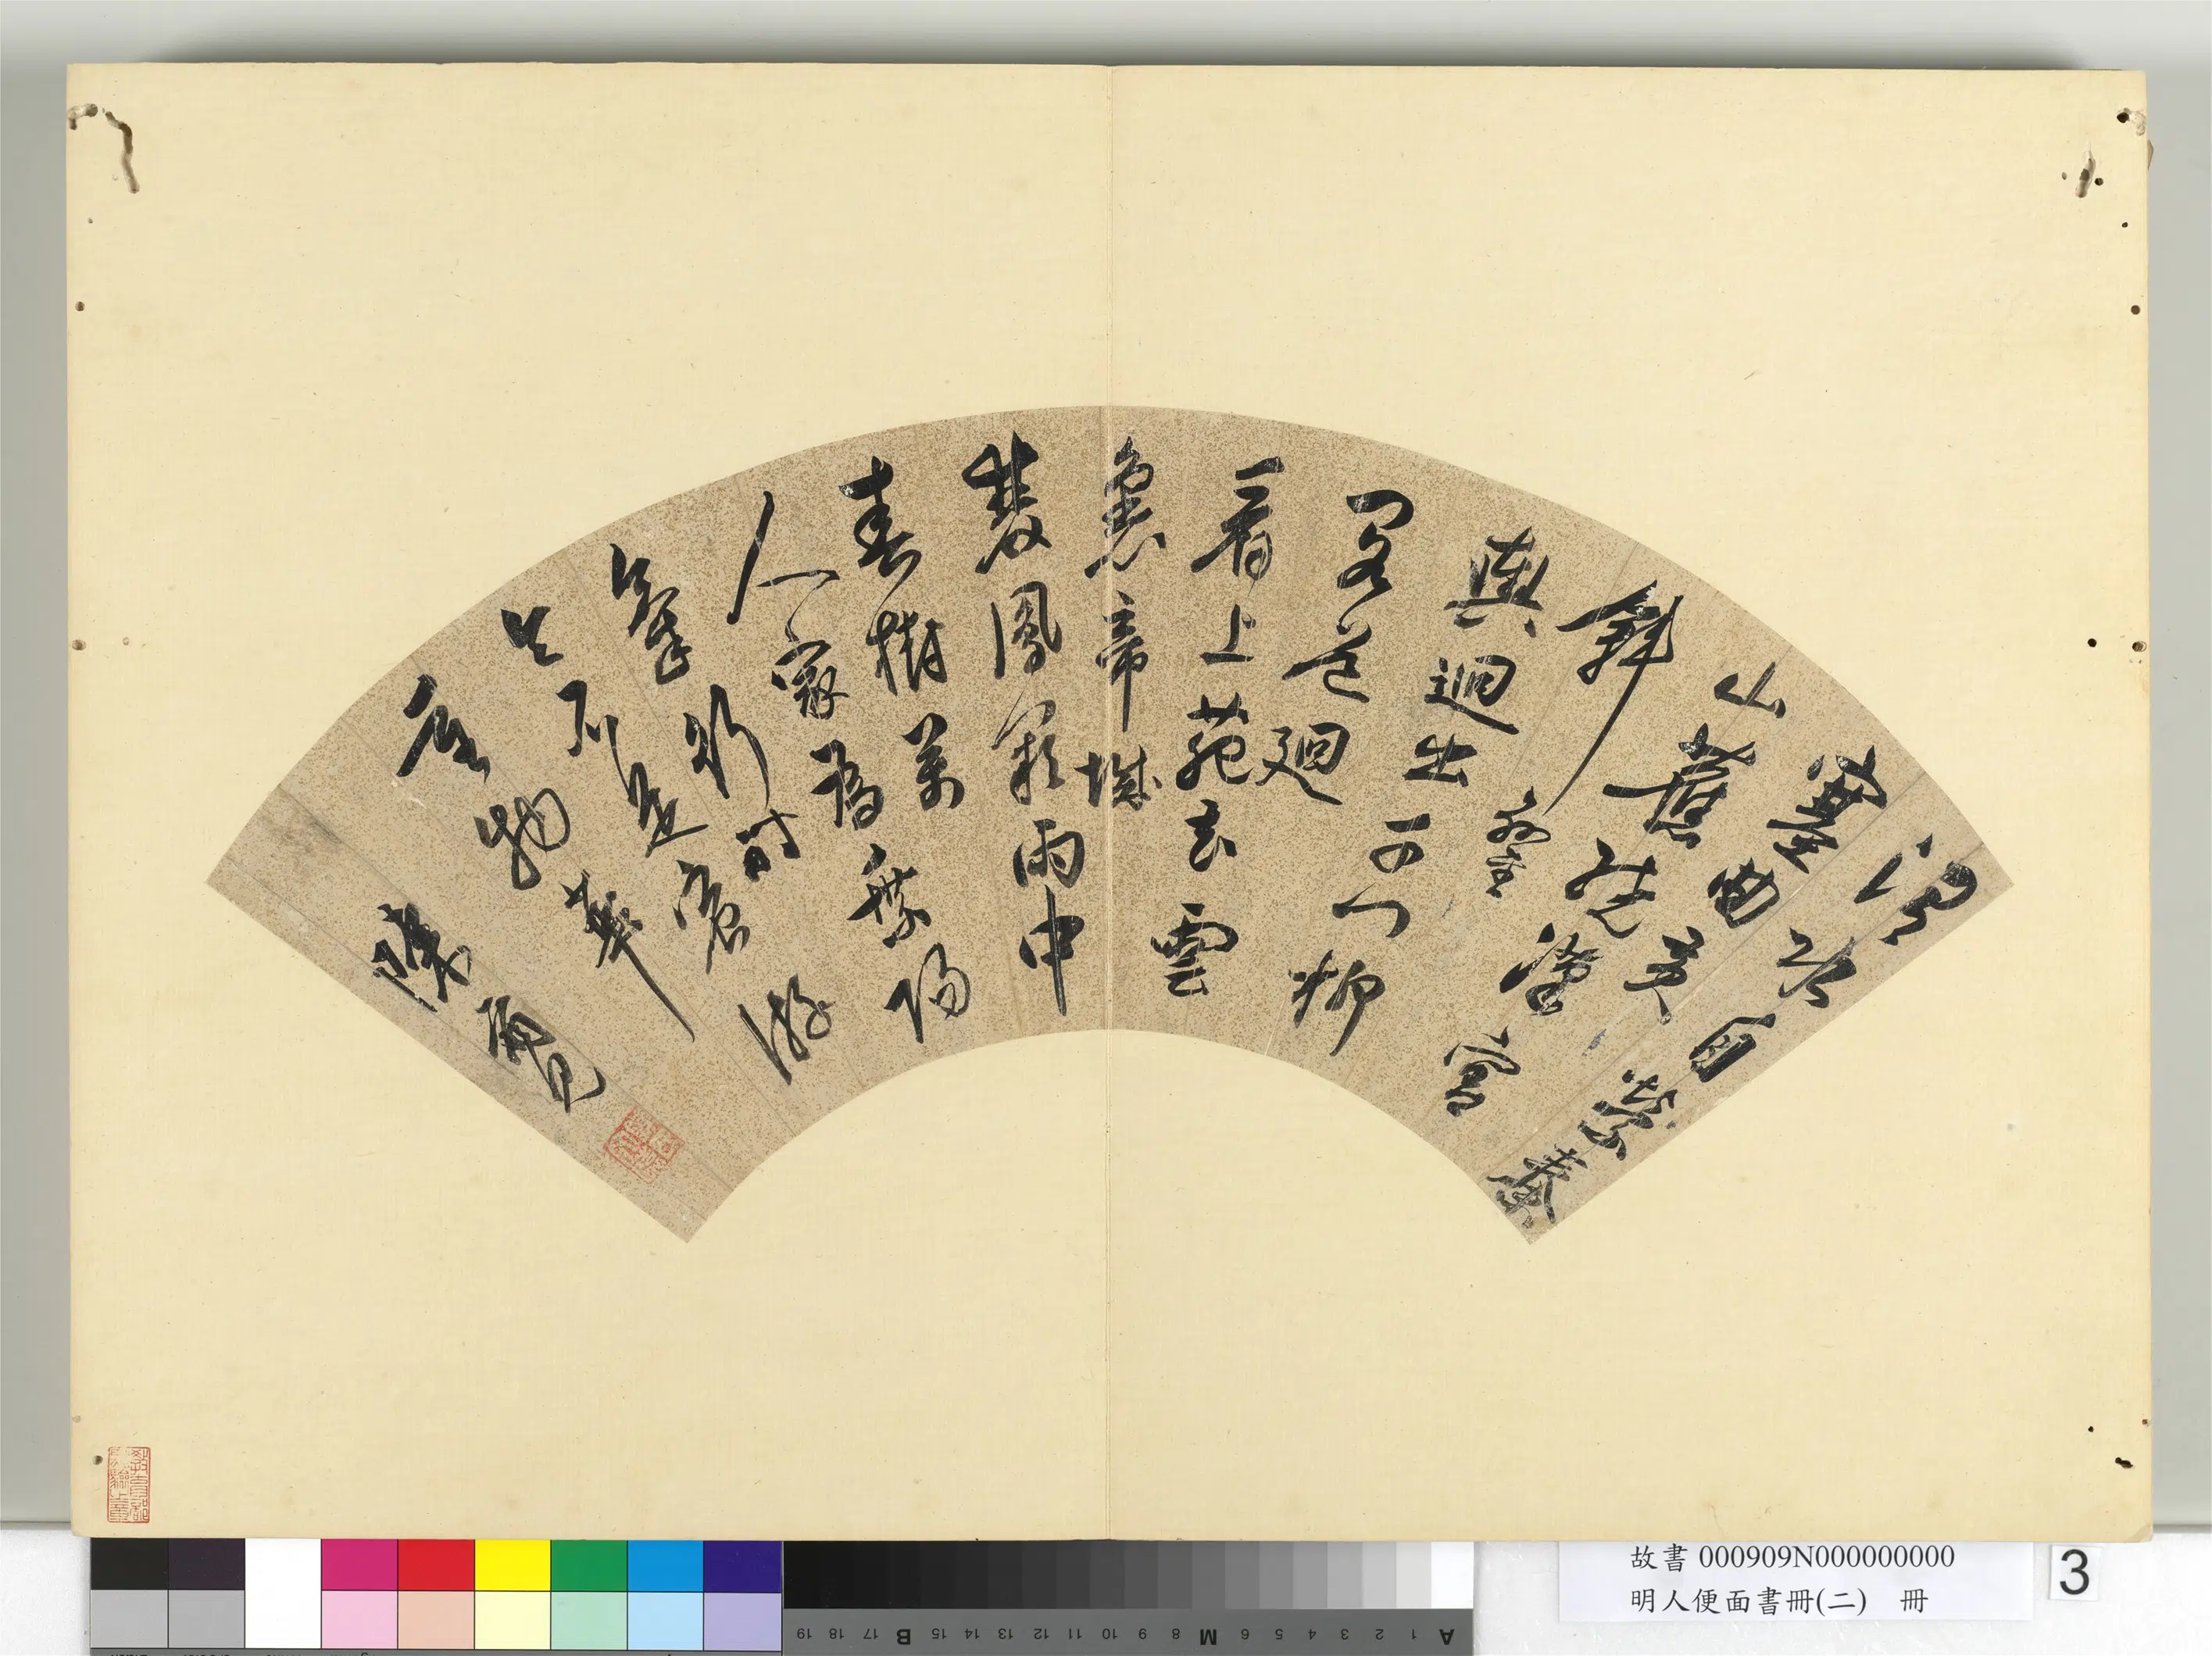 渭水自縈秦
塞曲黃
山舊繞漢宮
斜鑾
輿迴出千門柳
閣道廻
看上苑花雲
裏帝城
雙鳳闕雨中
春樹萬
人家為乘陽
氣行時
令不是宸游
玩物華
陳
故書 000909N000000000
明人便面書冊(二) 冊
3
A 1 2 3 4 5 6 M 8 9 10 11 12 13 14 15 B 17 18 19